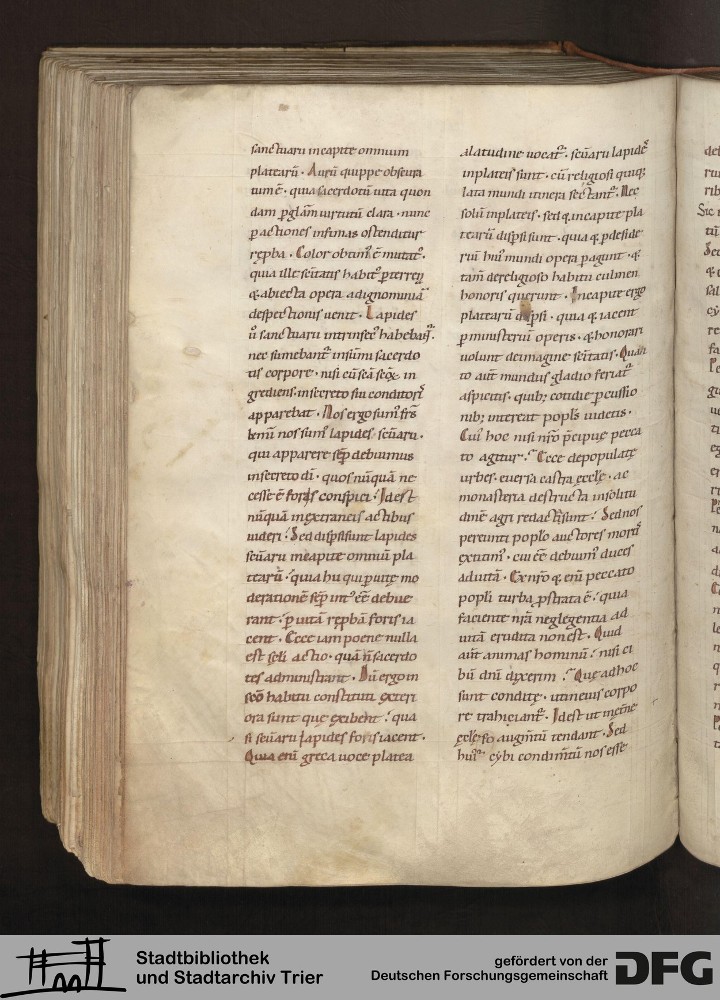 sanctuarii incapite omnium
platearũ · Aurũ quippe obscura
tum ẽ · quia sacerdotũ uita quon
dam p glãm uirtutũ clara · nunc
p actiones infimas ostenditur
rępba · Color obtim᷒ ẽ mutat᷒ ·
quia ille sc̃itatis habit᷒ p terren
& abiecta opera ad ignominiã
despectionis uenit · Lapides
ũ sanctuarii intrinsec᷒ habebant᷒ ·
nec sumebant᷒ insũmi sacerdo
tis corpore · nisi cũ sc̃a sc̃oꝝ in
grediens insecreto sui conditoris
apparebat · Nos ergo sum᷒ fr̃s
km̃i nos sum᷒ lapides sc̃uarii ·
qui apparere sẽp debuimus
insecreto di · quos nũquã ne
cesse ẽ foris conspici · Idest
nũquã inextraneis actibus
uideri · Sed disp̃si sunt lapides
sc̃uarii incapite omniũ pla
tearũ · quia hii qui p uitã &
moderationẽ sẽp int᷒ eẽ debue
rant · p uitã rępbã foris ia
cent · Ecce iam poene nulla
est sc̃li actio · quã ñ sacerdo
tes administrant · Dũ ergo in
sc̃o habitu constituti exteri
ora sunt que exibent · qua
si sc̃uarii lapides foris iacent ·
Quia enĩ greca uoce platea
a latudine uocat᷒ · sc̃uarii lapides
inplateis sunt · cũ religiosi quiq;
lata mundi itinera sectant᷒ · Nec
solũ inplateis · sed & incapite pla
tearũ disp̃si sunt · quia & p deside
riũ hui᷒ mundi opera pagunt · &
tam̃ dereligioso habitu culmen
honoris querunt · Incapite ergo
platearũ disp̃si · quia & iacent
p ministeriũ operis · & honorari
uolunt deimagine sc̃itatis · Quan
to aut̃ mundus gladio feriat᷒
aspicitis · quib; cotidie pcussio
nib; intereat popl̃s uidetis ·
Cui᷒ hoc nisi nr̃o p̃cipue pecca
to agitur · Ecce depopulatę
urbes · euersa castra · ęcclę · ac
monasteria destructa insolitu
dinẽ agri redacti sunt · Sed nos
pereunti poplo auctores mortis
extitim᷒ · cui eẽ debuim᷒ duces
ad uitã · Ex nr̃o & enĩ peccato
popli turba p̱strata ẽ · quia
faciente nr̃a neglegentia ad
uitã erudita non est · Quid
aut̃ animas hominũ · nisi ci
bũ dnĩ dixerim · Que ad hoc
sunt condite · ut ineius corpo
re traiciant᷒ · Idest ut in et̃nę
ęcl̃ę augm̃tũ tendant · Sed
hui᷒ cybi condim̃tũ nos esse
Stadtbibliothek
und Stadtarchiv Trier
gefördert von der
Deutschen Forschungsgemeinschaft
DFG